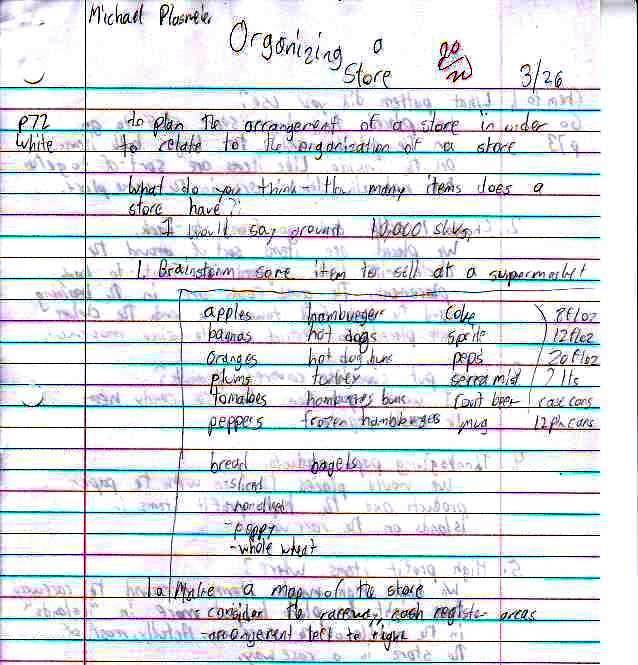 Michael Plasmeier
Organizing a
Store
20
3/26
p72 to plan the arrangement of a store in order
white to relate to the organization of a store
What do you think - How many items does a
store have?
I would say around 10,000 skus
1. Brainstorm some item to sell at a supermarket
apples hamburger Coke 8floz
bannas hot dogs sprite 12floz
oranges hot dog buns peps 20floz
plums turkey serra mist 2 lts
tomatoes hamburger buns root beer case cans
peppers frozen hambburges mug 12pk cans
bread bagels
-sliced
-whole wheat
1a Make a map of the store
-consider the raceway, cash register areas
-arrangement left to right